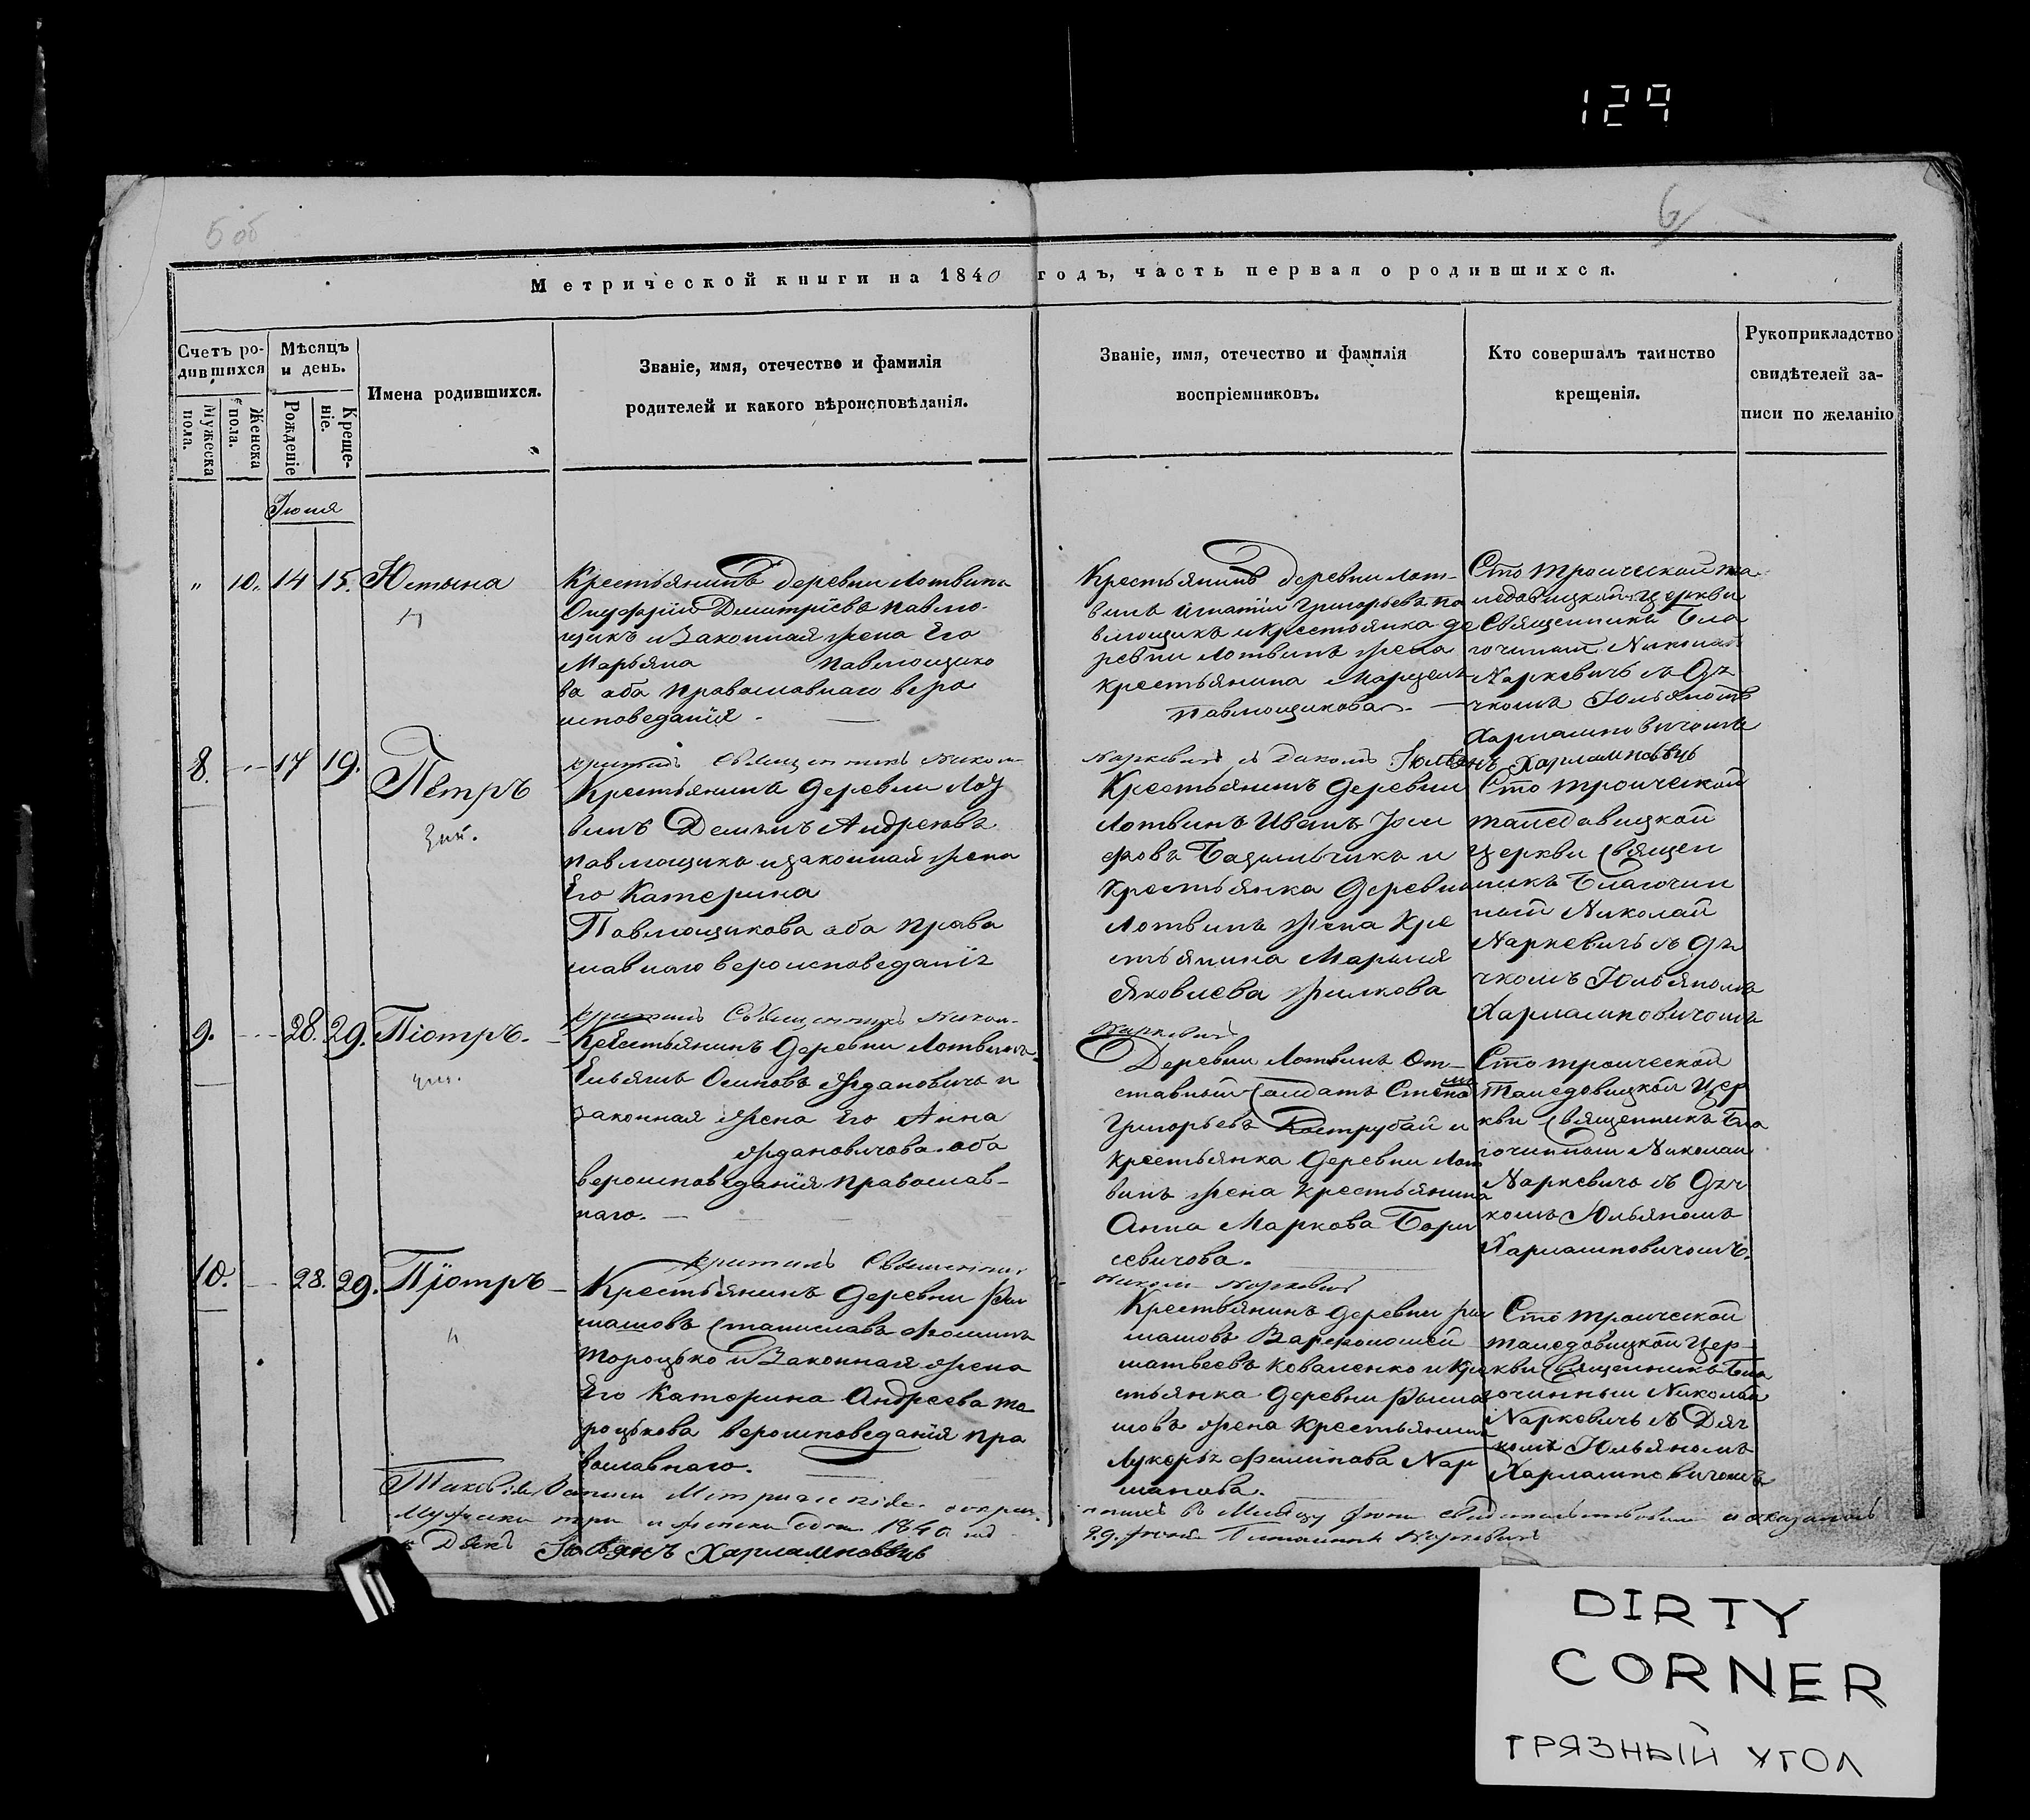 129
5 об
6
Метрической книги на 1840 годъ, часть первая о родившихся.
Счетъ ро-
дившихся
Мужеска
пола.
Женска
пола.
Мѣсяцъ
и день.
Рожденіе
Креще-
ніе.
Имена родившихся.
Званіе, имя, отечество и фамилія
родителей и какого вѣроисповѣданія.
Званіе, имя, отечество и фамилія
воспріемниковъ.
Кто совершалъ таинство
крещенія.
Рукоприкладство
свидѣтелей за-
писи по желанію
Іюня
" 10. 14 15. Юстына
Крестьянинъ деревни Лотвинъ
Онуфрій Дмитріевъ Павлю-
щикъ и Законная жена Его
Марьяна Павлющико
ва оба православнаго веро
исповеданія.
Крестьянинъ деревни Лот-
винъ Игнатіи Григорьевъ Па
влющикъ и крестьянка де
ревни Лотвинъ жена
крестьянина
Павлющикова.
Сто Троической
церкви
Священникъ Бла
гочиный Николай
Наркевичь съ Дя
чкомъ Юльяномъ
Харлампович​омъ
8. 17 19. Петръ
крестилъ Священникъ Никол
Крестьянинъ деревни Лот
винъ Демьянъ Андреевъ
Павлющикъ и законная жена
Его Катерина
Павлющикова оба право
славнаго вероисповеданія
Наркевичъ съ Дякомъ Юльянъ Харламповичъ
Крестьянинъ деревни
Лотвинъ Иванъ Іоси
фовъ и
крестьянка деревни
Лотвинъ жена кре
стьянина Марыя
Яковлева Жилкова
Сто троической
церкви Священ
никъ Благочин
ный Николай
Наркевичь съ Дя
чкомъ Юльяномъ
Харламповичомъ
9. 28. 29. Піотръ.
крестилъ Священникъ Никол.
Крестьянинъ деревни Лотвинъ
Ждановичь и
законная жена Его Анна
Ждановичова оба
вероисповеданія православ-
наго.
Наркевичъ
Деревни Лотвинъ От-
ставный Салдатъ Степа
Григорьевъ и
крестьянка деревни Лот
винъ жена крестьянина
Анна Маркова Бори
севичова.
Сто троической
Цер
кви Священникъ Бла
гочинный Николай
Наркевичь съ Дяч
комъ Юльяномъ
Харламповичомъ.
10. 28. 29. Піотръ
крестилъ Священникъ
Крестьянинъ деревни Ры
машовъ Станиславъ Фоминъ
Тороцько и Законная жена
Его Катерина Андреева То
роцькова вероисповеданія пра
вославнаго.
Николай Наркевичъ
Крестьянинъ деревни Ры
машовъ Варфоломей
Матвеевъ Коваленко и кре
стьянка деревни Рыма
шовъ жена крестьянина
Лукеръя Филипова
Сто троической
Цер-
кви Священникъ Бла
гочинный Николай
Наркевичь съ Дяч
комъ Юльяномъ
Харламповичомъ
1840 год
въ Месяцу Іюни
Дякъ Юльянъ Харламповичъ
29. Іюня Наркевичъ
DIRTY
CORNER
ГРЯЗНЫЙ УГОЛ